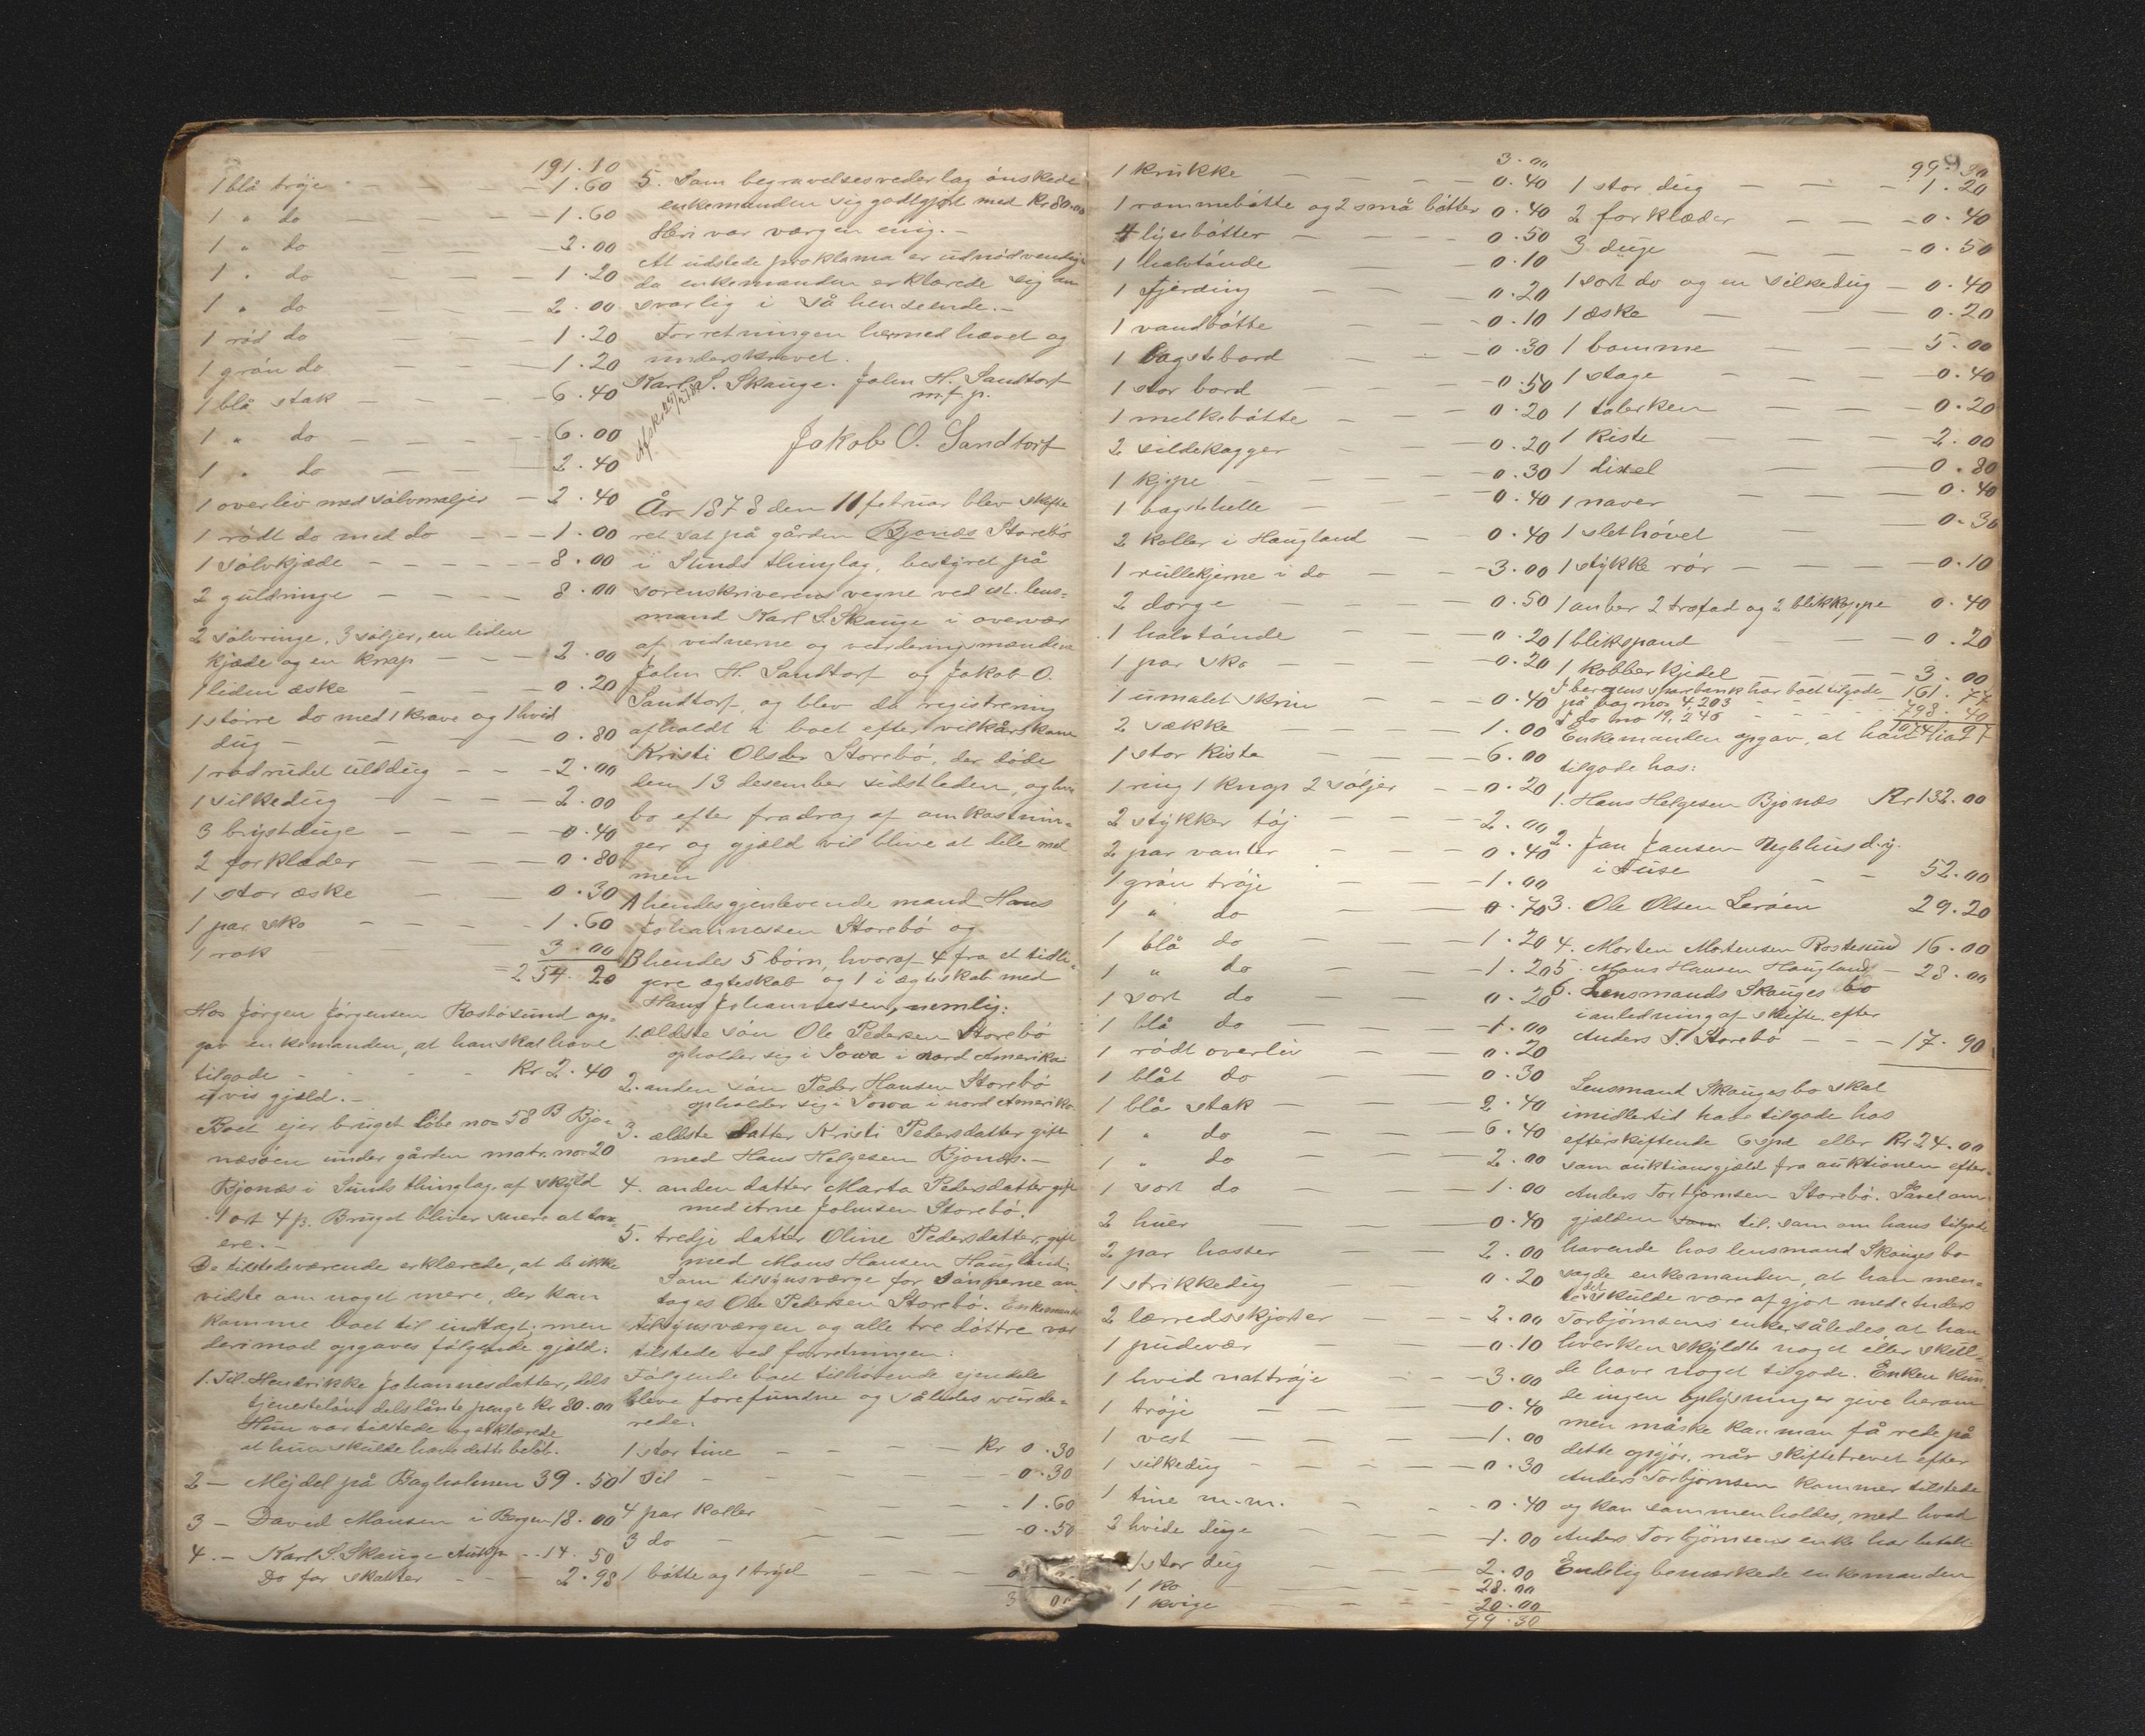 191.10
1 blå trøje - - - 1.60
1 " do - - - 1.60
1 " do - - - 2.00
1 " do - - - 1.20
1 " do - - - 2.00
1 rød do - - - 1.20
1 grøn do - - - 1.20
1 blå stak - - - 6.40
1 " do - - - 6.00
1 " do - - - 2.40
1 overliv med sølvmaljer - 2.40
1 rødt do med do - - - 1.00
1 sølvkjæde - - - 8.00
2 guldringe - - - 8.00
2 sølvringe, 3 søljer, en liden
kjæde og en knap - - - 2.00
1 liden æske - - - 0.20
1 større do med 1 krave og 1 hvid
dug - - - 0.80
1 rødrudet ulddug - - - 2.00
1 silkedug - - - 2.00
3 brystduge - - - 0.40
2 forklæder - - - 0.80
1 stor æske - - - 0.30
1 par sko - - - 1.60
1 rok - - - 3.00
254.20
Hos Jørgen Jørgensen Rostøsund op-
gav enkemanden, at han skal have
tilgode - - - Kr 2.40
uvis gjæld.-
Boet ejer bruget løbe no 58 B Bjo-
næsøen under gården matr. no 20
Bjonæs i Sunds thinglag, af skyld
1 ort 4 ß. Bruget bliver senere at tax-
ere.-
De tilstedeværende erklærede, at de ikke
vidste om noget mere, der kan
komme boet til indtægt, men
derimod opgaves følgende gjæld:
1. Til Hendrikke Johannesdatter, dels
tjenesteløn dels lånte penge Kr 80.00
Hun var tilstede og erklærede
at hun skulde have dette beløb.
2 - Mejdel på Bagholmen 39.50
3 - David Monsen i Bergen 18.00
4 - Karl S. Skauge Auktp. - - 14.50
Do for skatter - - - 2.98
5. Som begravelsesvederlag ønskede
enkemanden sig godtgjort med Kr 80.00
Heri var værgen enig.-
At udstede proklama er unødvendig
da enkemanden erklærede sig an
svarlig i så henseende.-
Forretningen hermed hævet og
underskrevet.
Karl S. Skauge. John H. Sandtorf
m.f.p.
Jakob O. Sandtorf
År 1878 den 11 februar blev skifte
ret sat på gården Bjonæs Storebø
i Sunds thinglag, bestyret på
sorenskriverens vegne ved cst. lens-
mand Karl S. Skauge i overvær
af vidnerne og vurderingsmændene
John H. Sandtorf og Jakob O.
Sandtorf, og blev da registrering
afholdt i boet efter vilkårskone
Kristi Olsdtr Storebø, der døde
den 13 desember sidstleden, og hvis
bo efter fradrag af omkostnin-
ger og gjæld vil blive at dele mel
men
A hendes gjenlevende mand Hans
Johannessen Storebø og
B hendes 5 børn, hvoraf 4 fra et tidli-
gere ægteskab og 1 i ægteskab med
Hans Johannessen, nemlig:
1. ældste søn Ole Pedersen Storebø
opholder sig i Iowa i nord Amerika
2. anden søn Peder Hansen Storebø
opholder sig i Iowa i nord Amerika
3. ældste datter Kristi Pedersdatter gift
med Hans Helgesen Bjonæs.-
4. anden datter Marta Pedersdatter gift
med Arne Johnsen Storebø.
5. tredje datter Oline Pedersdatter, gift
med Mons Hansen Haugland.
Som tilsynsværge for sønnerne an-
tages Ole Pedersen Storebø. Enkemanden
tilsynsværgen og alle tre døttre var
tilstede ved forretningen:
Følgende boet tilhørende ejendele
bleve forefundne og således vurde-
rede:
1 stor tine - - - Kr 0.30
1 sil - - - 0.30
4 par koller - - - 1.60
3 do - - - 0.50
1 bøtte og 1 trýel
1 krukke - - - 0.40
3.00
1 rømmebøtte og 2 små bøtter 0.40
4 lysebøtter - - - 0.50
1 halvtønde - - - 0.10
1 fjerding - - - 0.20
1 vandbøtte - - - 0.10
1 bagstebord - - - 0.30
1 stor bord - - - 0.50
1 melkebøtte - - - 0.20
2 sildekagger - - - 0.20
1 kjipe - - - 0.30
1 bagstehelle - - - 0.40
2 koller i Haugland - 0.40
1 rullekjerne i do - - - 3.00
2 dorge - - - 0.50
1 halvtønde - - - 0.20
1 par sko - - - 0.20
1 umalet skrin - - - 0.40
2 sække - - - 1.00
1 stor kiste - - - 6.00
1 ring 1 knap 2 søljer - - 0.20
2 stykker tøj - - - 2.00
2 par vanter - - - 0.40
1 grøn trøje - - - 1.00
1 " do - - - 0.70
1 blå do - - - 1.20
1 " do - - - 1.20
1 sort do - - - 0.20
1 blå do - - - 1.00
1 rødt overliv - - - 0.20
1 blåt do - - - 0.30
1 blå stak - - - 2.40
1 " do - - - 6.40
1 " do - - - 2.00
1 sort do - - - 1.00
2 huer - - - 0.40
2 par hoser - - - 2.00
1 strikkedug - - - 0.20
2 lærredsskjorter - - - 2.00
1 pudevær - - - 0.10
1 hvid nattrøje - - - 3.00
1 trøje - - - 0.40
1 vest - - - 1.00
1 silkedug - - - 0.30
1 tine m.m. - - - 0.40
2 hvide duge - - - 1.00
1 stor dug - - - 2.00
1 ko - - - 28.00
1 kvige - - - 20.00
99.30
99.30
1 stor dug - - - 1.20
2 forklæder - - - 0.40
3 duge - - - 0.50
1 sort do og en silkedug - 0.40
1 æske - - - 0.20
1 bomme - - - 5.00
1 stage - - - 0.40
1 talerken - - - 0.20
1 kiste - - - 2.00
1 dixel - - - 0.80
1 naver - - - 0.40
1 slethøvel - - - 0.30
1 stykke rør - - - 0.10
1 anber 2 trøfad og 2 blikkoppe 0.40
1 blikspand - - - 0.20
1 kobberkjedel - - - 3.00
I bergens sparebank har boet tilgode
på bog no 4,203 - - - 161.77
I do no 19,245 - - - 798.40
1074.97
Enkemanden opgav, at han har
tilgode hos:
1. Hans Helgesen Bjonæs Kr 132.00
2. Jan Jansen Uglhus d.y.
i Fuse - - - 52.00
3. Ole Olsen Lerøen 29.20
4. Morten Mortensen Rostesund 16.00
5. Mons Hansen Haugland - 28.00
6. Lensmands Skauges bo
i anledning af skifte efter
Anders T. Storebø - - - 17.90
Lensmand Skauges bo skal
imidlertid have tilgode hos
efterskiftende 6 spd eller Kr 24.00
som auktionsgjæld fra auktionen efter
Anders Torbjørnsen Storebø. Såvel om
gjælden som til, som om hans tilgode
havende hos lensmand Skauges bo
sagde enkemanden, at han men-
te det skulde være afgjort med Anders
Torbjørnsens enke således, at han
hverken skyldte noget eller skul-
de have noget tilgode. Enken kun
de ingen oplysninger give herom
men måske kan man få rede på
dette opgjør, når skiftebrevet efter
Anders Torbjørnsen kommer tilstede
og kan sammenholdes, med hvad
Anders Torbjørnsens enke har betalt
Endelig bemærkede enkemanden